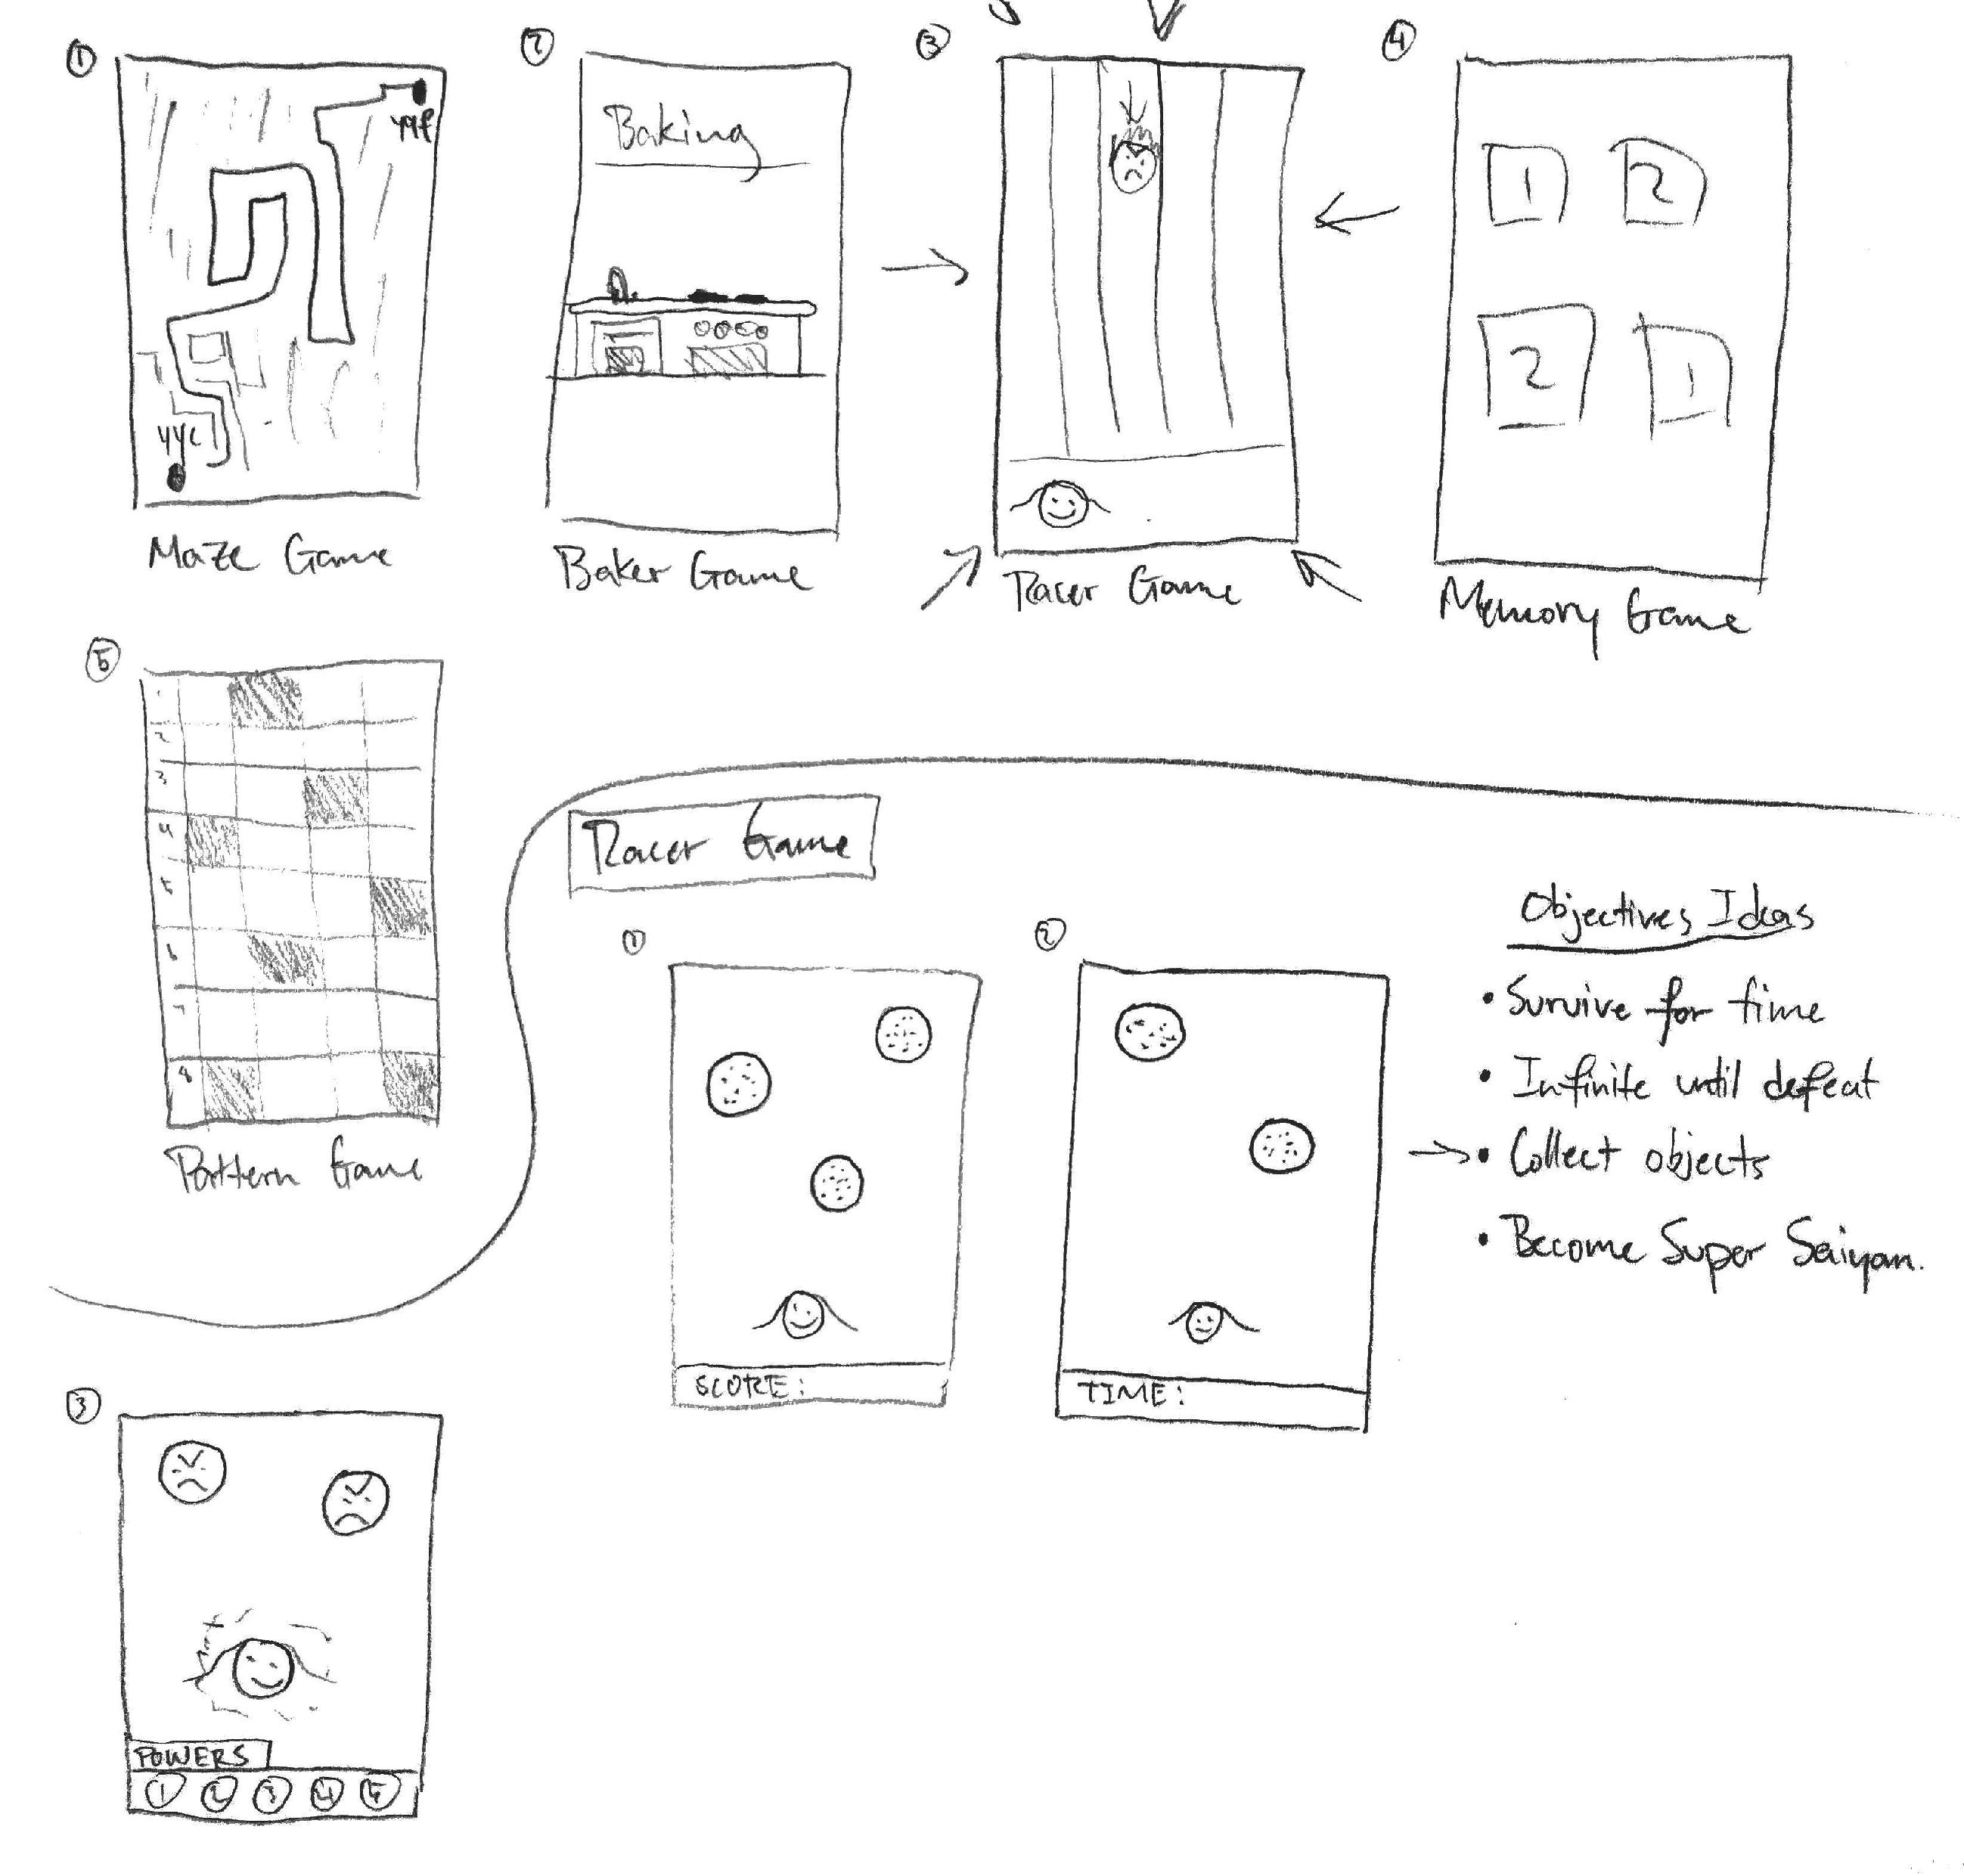 ① ② ③ ④
yyc
Maze Game
Baking
Baker Game
Racer Game
1 2
2 1
Memory Game
⑤
1
2
3
4
5
6
7
8
Pattern Game
Racer Game
① ②
SCORE:
TIME:
Objectives Ideas
• Survive for time
• Infinite until defeat
→• Collect objects
• Become Super Saiyan.
③
POWERS
① ② ③ ④ ⑤